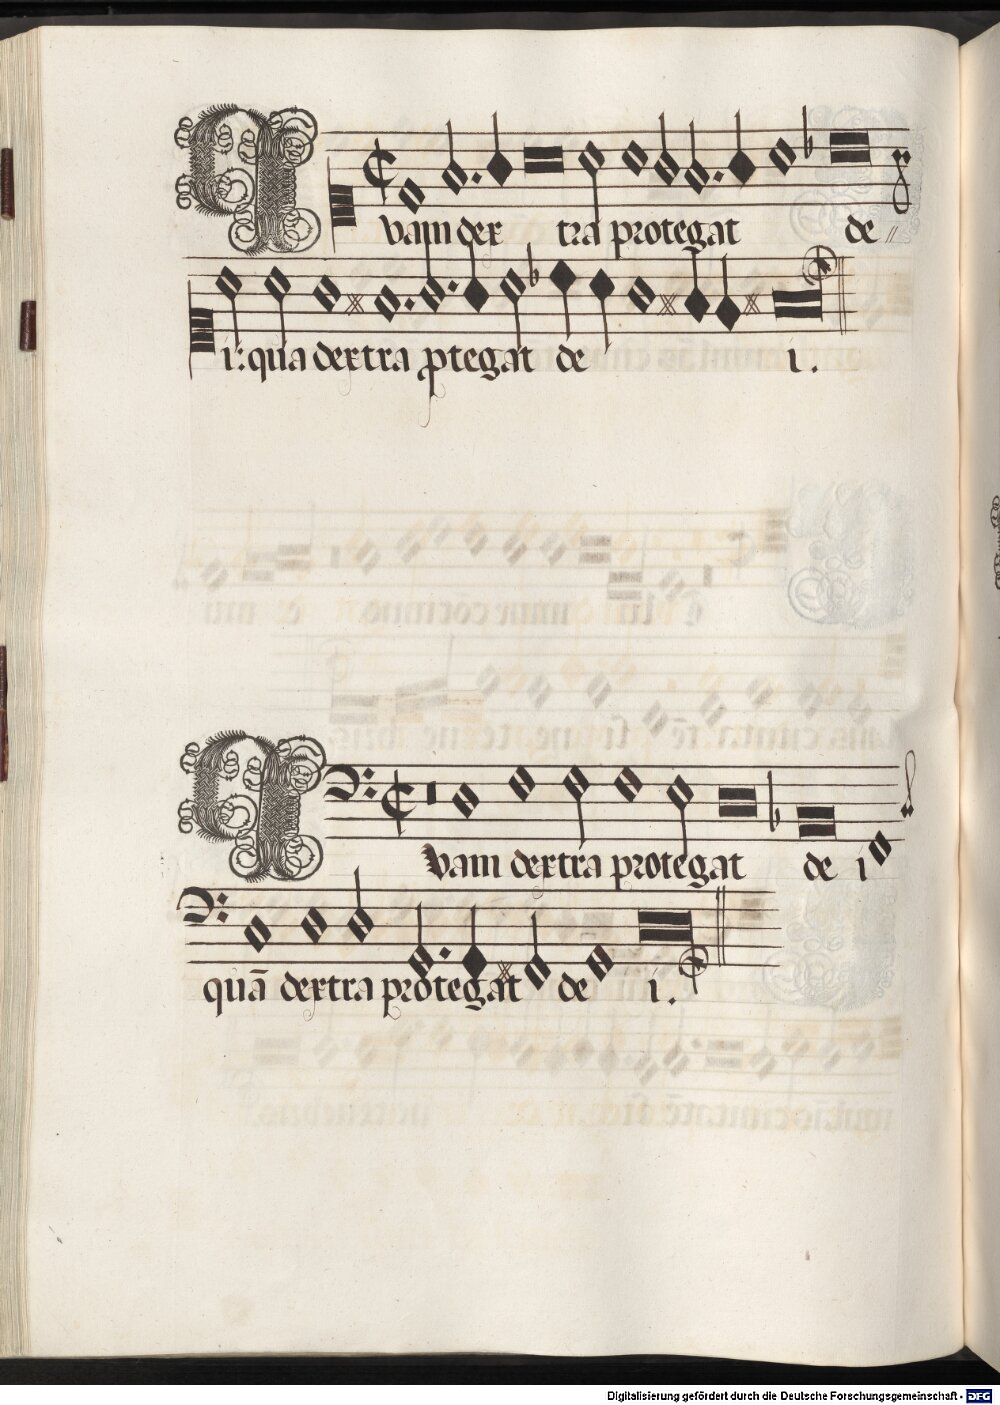 Quam dextra protegat de
i: qua dextra ꝓtegat de i.
Quam dextra protegat de i
quā dextra protegat de i.
Digitalisierung gefördert durch die Deutsche Forschungsgemeinschaft - DFG